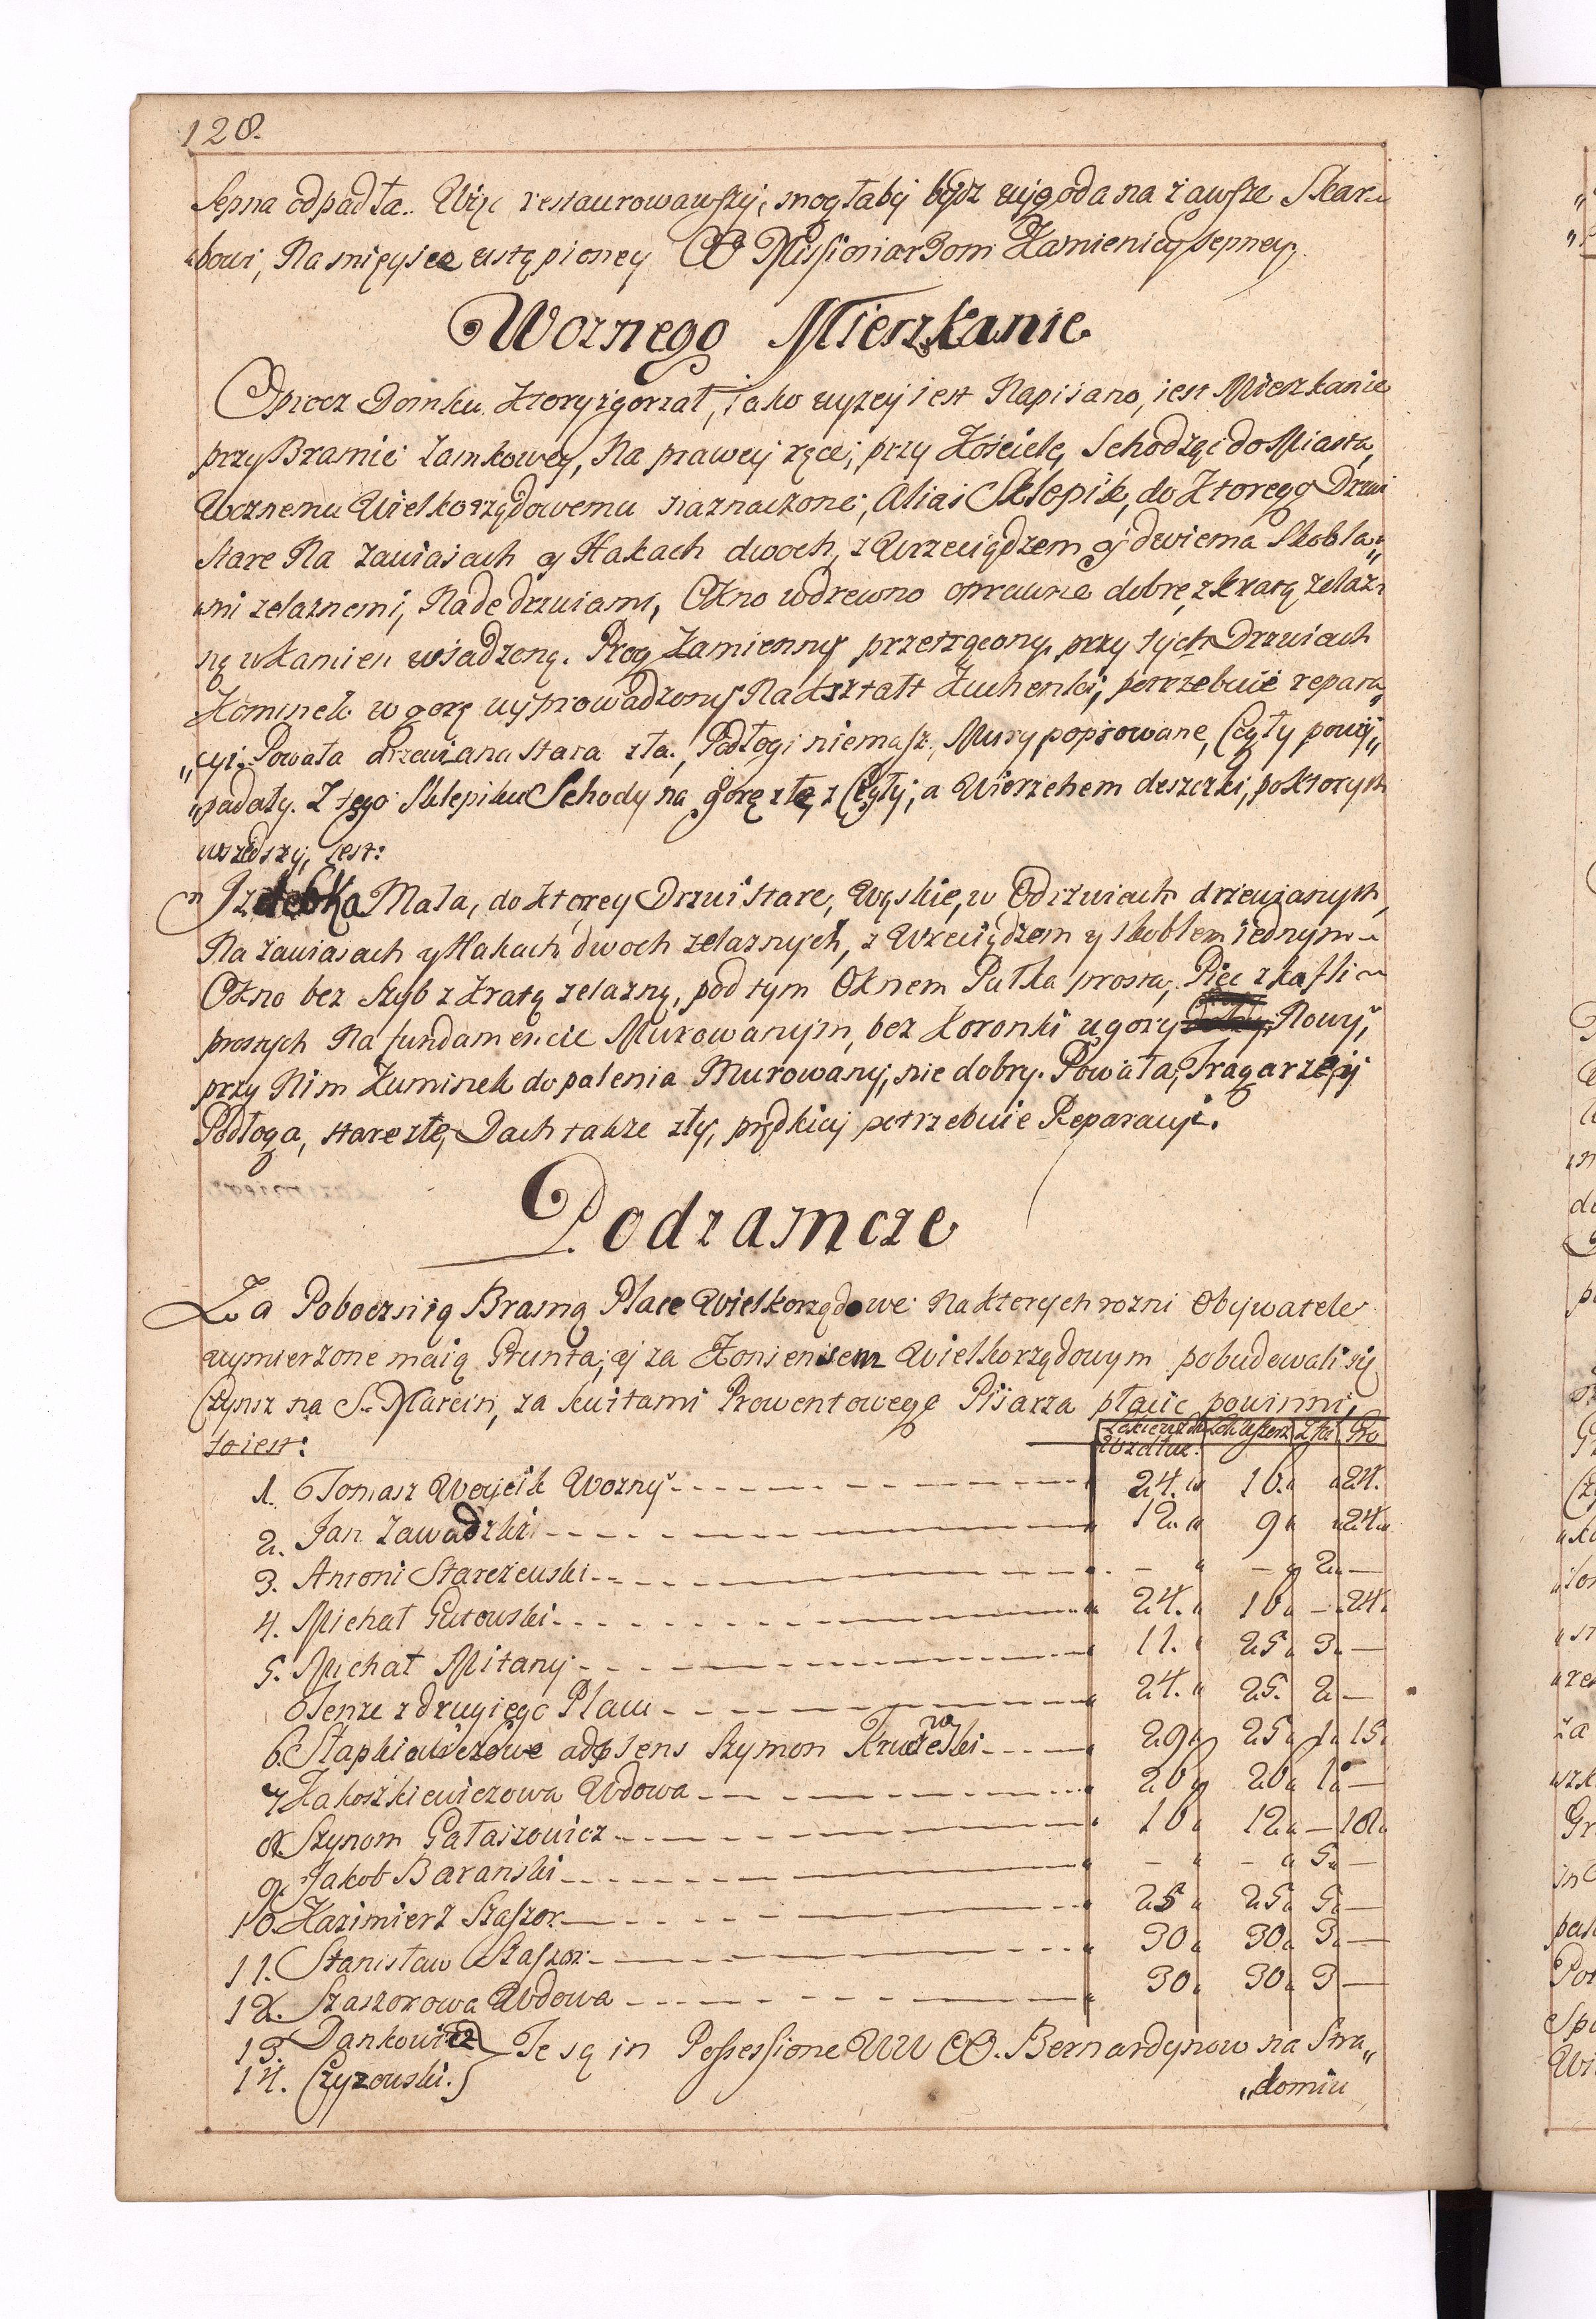 128.
Sepna odpadła. Więc restaurowawszy, mogłaby bydz wygoda na zawsze Skar„
„bowi, Na mieysce ustąpioney XX Missionarzom Kamienicy Sepney.
Woznego Mieszkanie
Oprocz Domku ktory zgorzał, jako wyzey iest Napisano, iest Mieszkanie
przy Bramie Zamkowey, Na prawey ręce, przy Kościele, Schodząc do Miasta,
Woznemu Wielkorządowemu naznaczone, Alias Sklepik, do Ktorego Drzwi
stare Na zawiasach y Hakach dwoch, z Wrzeciądzem y dwiema Skobla„
„mi zelaznemi, Nade drzwiami, Okno w drewno oprawne dobre, z kratą zelaz„
ną w Kamień wsadzoną. Prog Kamienny przetrącony, przy tych Drzwiach
Kominek w gorę wyprowadzony Nakształt Kuchenki, potrzebuie repara„
„cyi. Powała drzewiana stara zła, Podłogi niemasz, Mury popsowane, Cegły powy„
„padały. Z tego Sklepiku Schody na gorę złe z Cegły, a Wierzchem deszczki, po ktorych
wszedszy, iest:
Izdebka Mała, do ktorey Drzwi stare, Wąskie, w Odrzwiach drzewianych,
Na zawiasach y Hakach dwoch zelaznych, z Wrzeciądzem y skoblem iednym
Okno bez Szyb z Kratą zelazną, pod tym Oknem Pułka prosta, Piec z kafli
prostych Na fundamencie Murowanym, bez Koronki u gory Nowy,
przy Nim Kuminek do palenia Murowany, nie dobry. Powała, Tragarze, y
Podłoga, stare złe, Dach takze zły, prędkiey potrzebuie Reparacyi.
Podzamcze
Za Pobocznią Bramą Place Wielkorządowe Na ktorych rozni Obywatele
wymierzone maią Grunta, y za Konsensem Wielkorządowym pobudowali się
Czynsz na S. Marcin, za kwitami Prowentowego Pisarza płacic powinni,
to iest:
Łokci Wzdłuz Łok. Wszerz Złł Gro
1. Tomasz Woycik Wozny 24. 16. 24.
2. Jan Zawadzki 12. 9 24.
3. Antoni Starzewski — — 2 —
4. Michał Gutowski 24. 16 — 24.
5. Michał Mitany 11. 25 3 —
Tenze z drugiego Placu 24. 25. 2 —
6. Stapkiewiczowe adpsens Szymon Kruczewski 29 25 1 15
7 Kakoszkiewiczowa Wdowa 26 26 1 —
8. Szymom Gałaszowicz 16 12 — 18
9. Jakob Baranski — — 5 —
10. Kazimierz Szaszor 25 25 5 —
11. Stanisław Szaszor 30 30 3 —
12. Szaszorowa Wdowa 30 30 3 —
13. Dankowicz
14. Czyzowski. } Te są in Possessione WW OO. Bernardynow na Stra„
„domiu